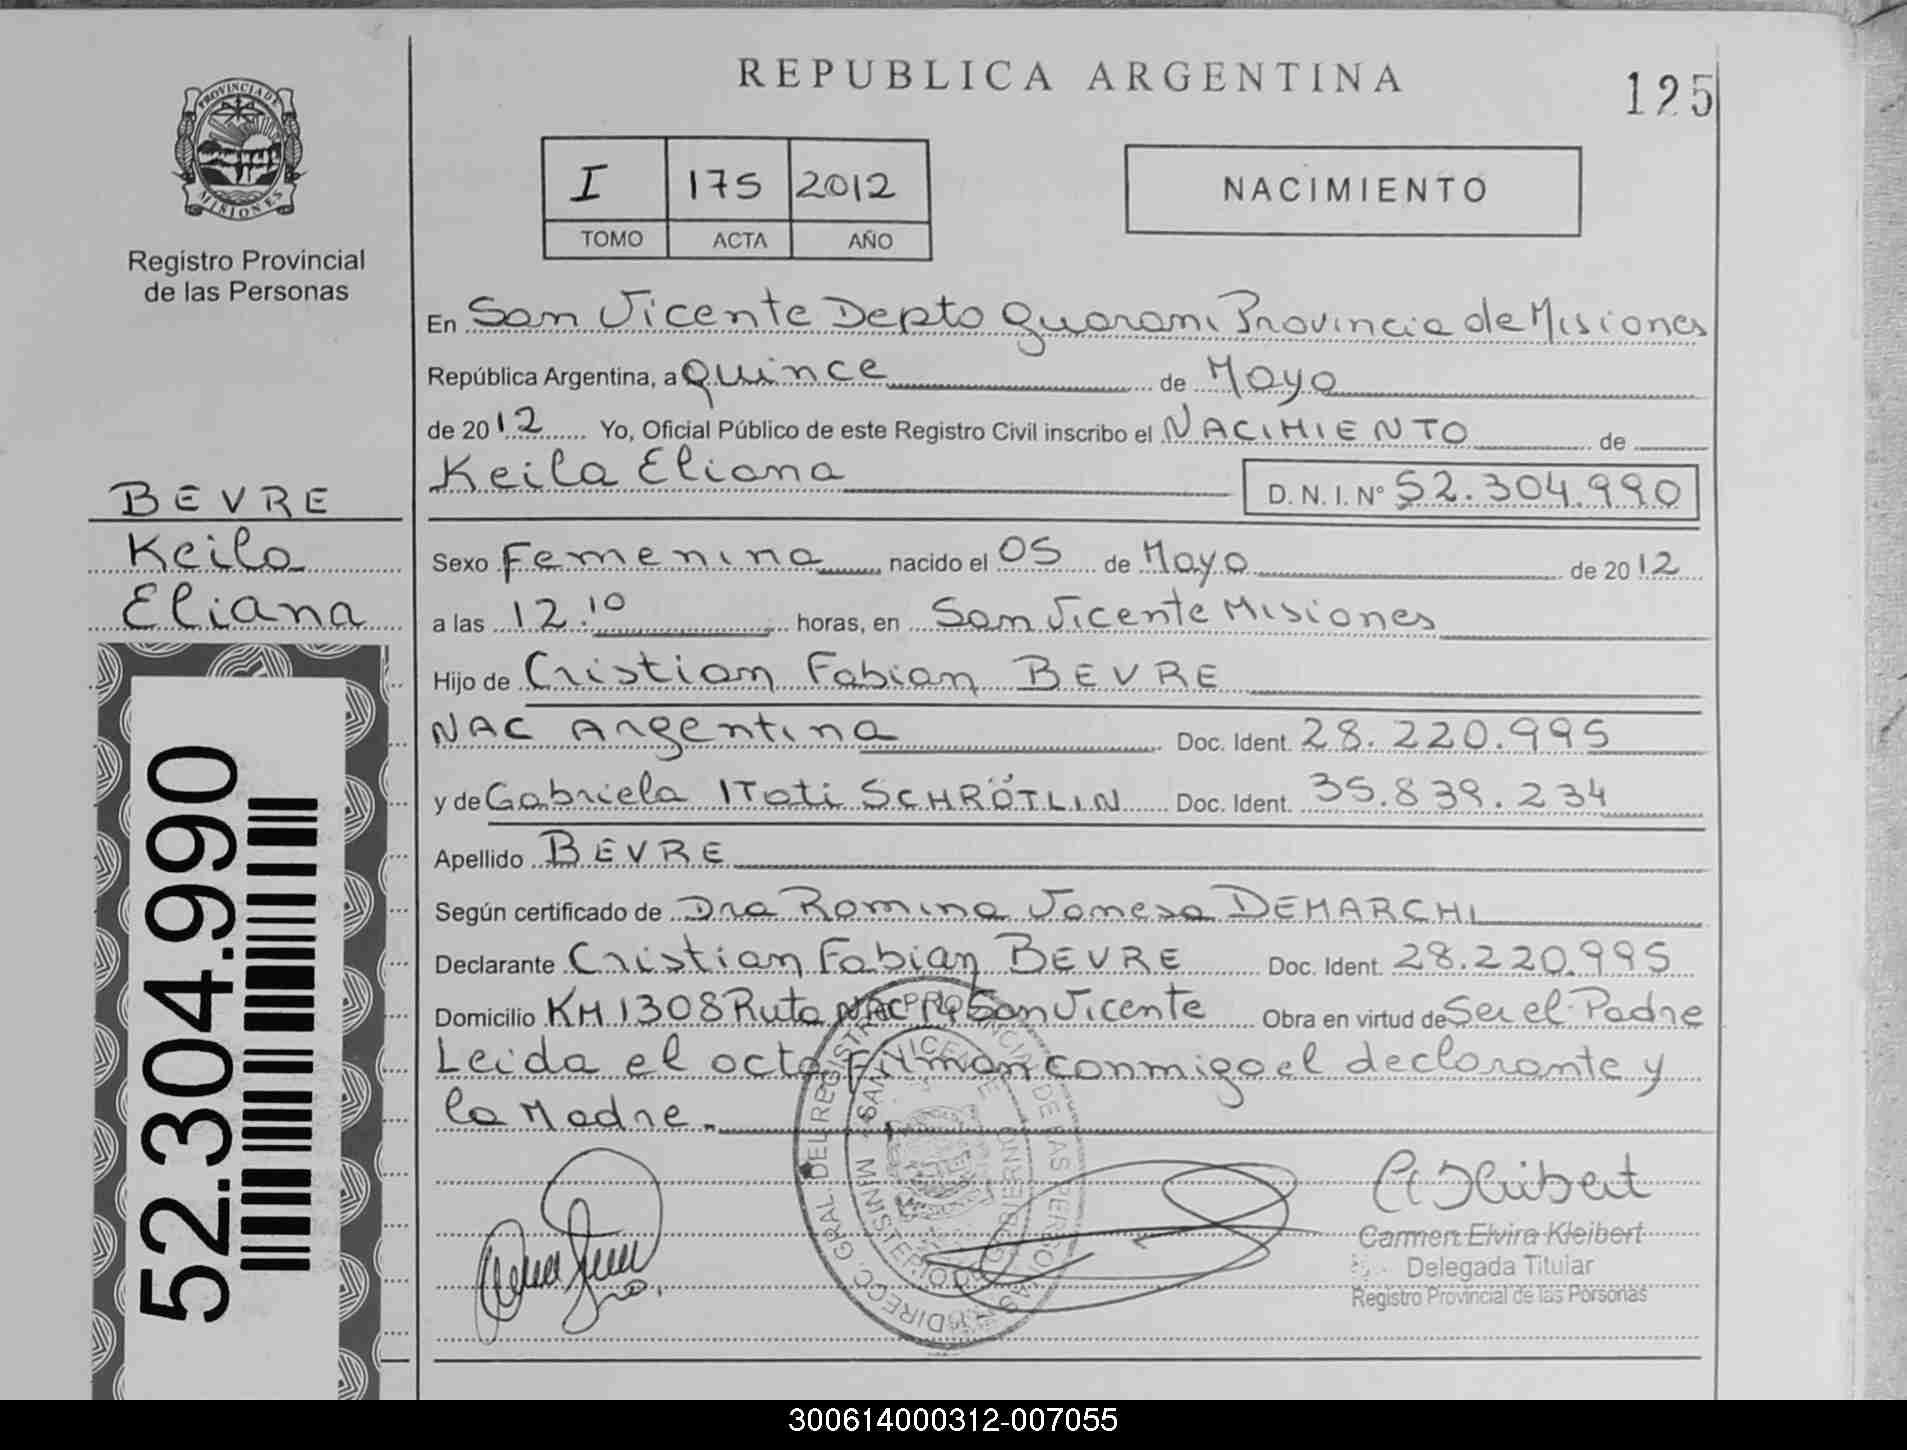 REPUBLICA ARGENTINA
125
PROVINCIA DE
MISIONES
Registro Provincial
de las Personas
I 175 2012
TOMO ACTA AÑO
NACIMIENTO
En San Vicente Depto Guarani Provincia de Misiones
República Argentina, a quince de Mayo
de 2012 Yo, Oficial Público de este Registro Civil inscribo el NACIMIENTO de
Keila Eliana D. N. I. N° 52.304.990
BEVRE
Keila
Eliana
Sexo Femenina nacido el 05 de Mayo de 2012
a las 12.10 horas, en San Vicente Misiones
Hijo de Cristian Fabian BEVRE
NAC Argentina Doc. Ident. 28.220.995
y de Gabriela ITati SCHRÖTLIN Doc. Ident. 35.839.234
Apellido BEVRE
Según certificado de Dra Romina Vanesa DEMARCHI
Declarante Cristian Fabian BEVRE Doc. Ident. 28.220.995
Domicilio KM 1308 Ruta NAC 14 San Vicente Obra en virtud de Ser el Padre
Leida el acta firman conmigo el declarante y
la Madre.
52.304.990
DIRECC. GRAL DEL REGISTRO PROVINCIAL DE LAS PERSONAS
SAN VICENTE
MINISTERIO DE GOBIERNO
Carmen Elvira Kleibert
Delegada Titular
Registro Provincial de las Personas
300614000312-007055